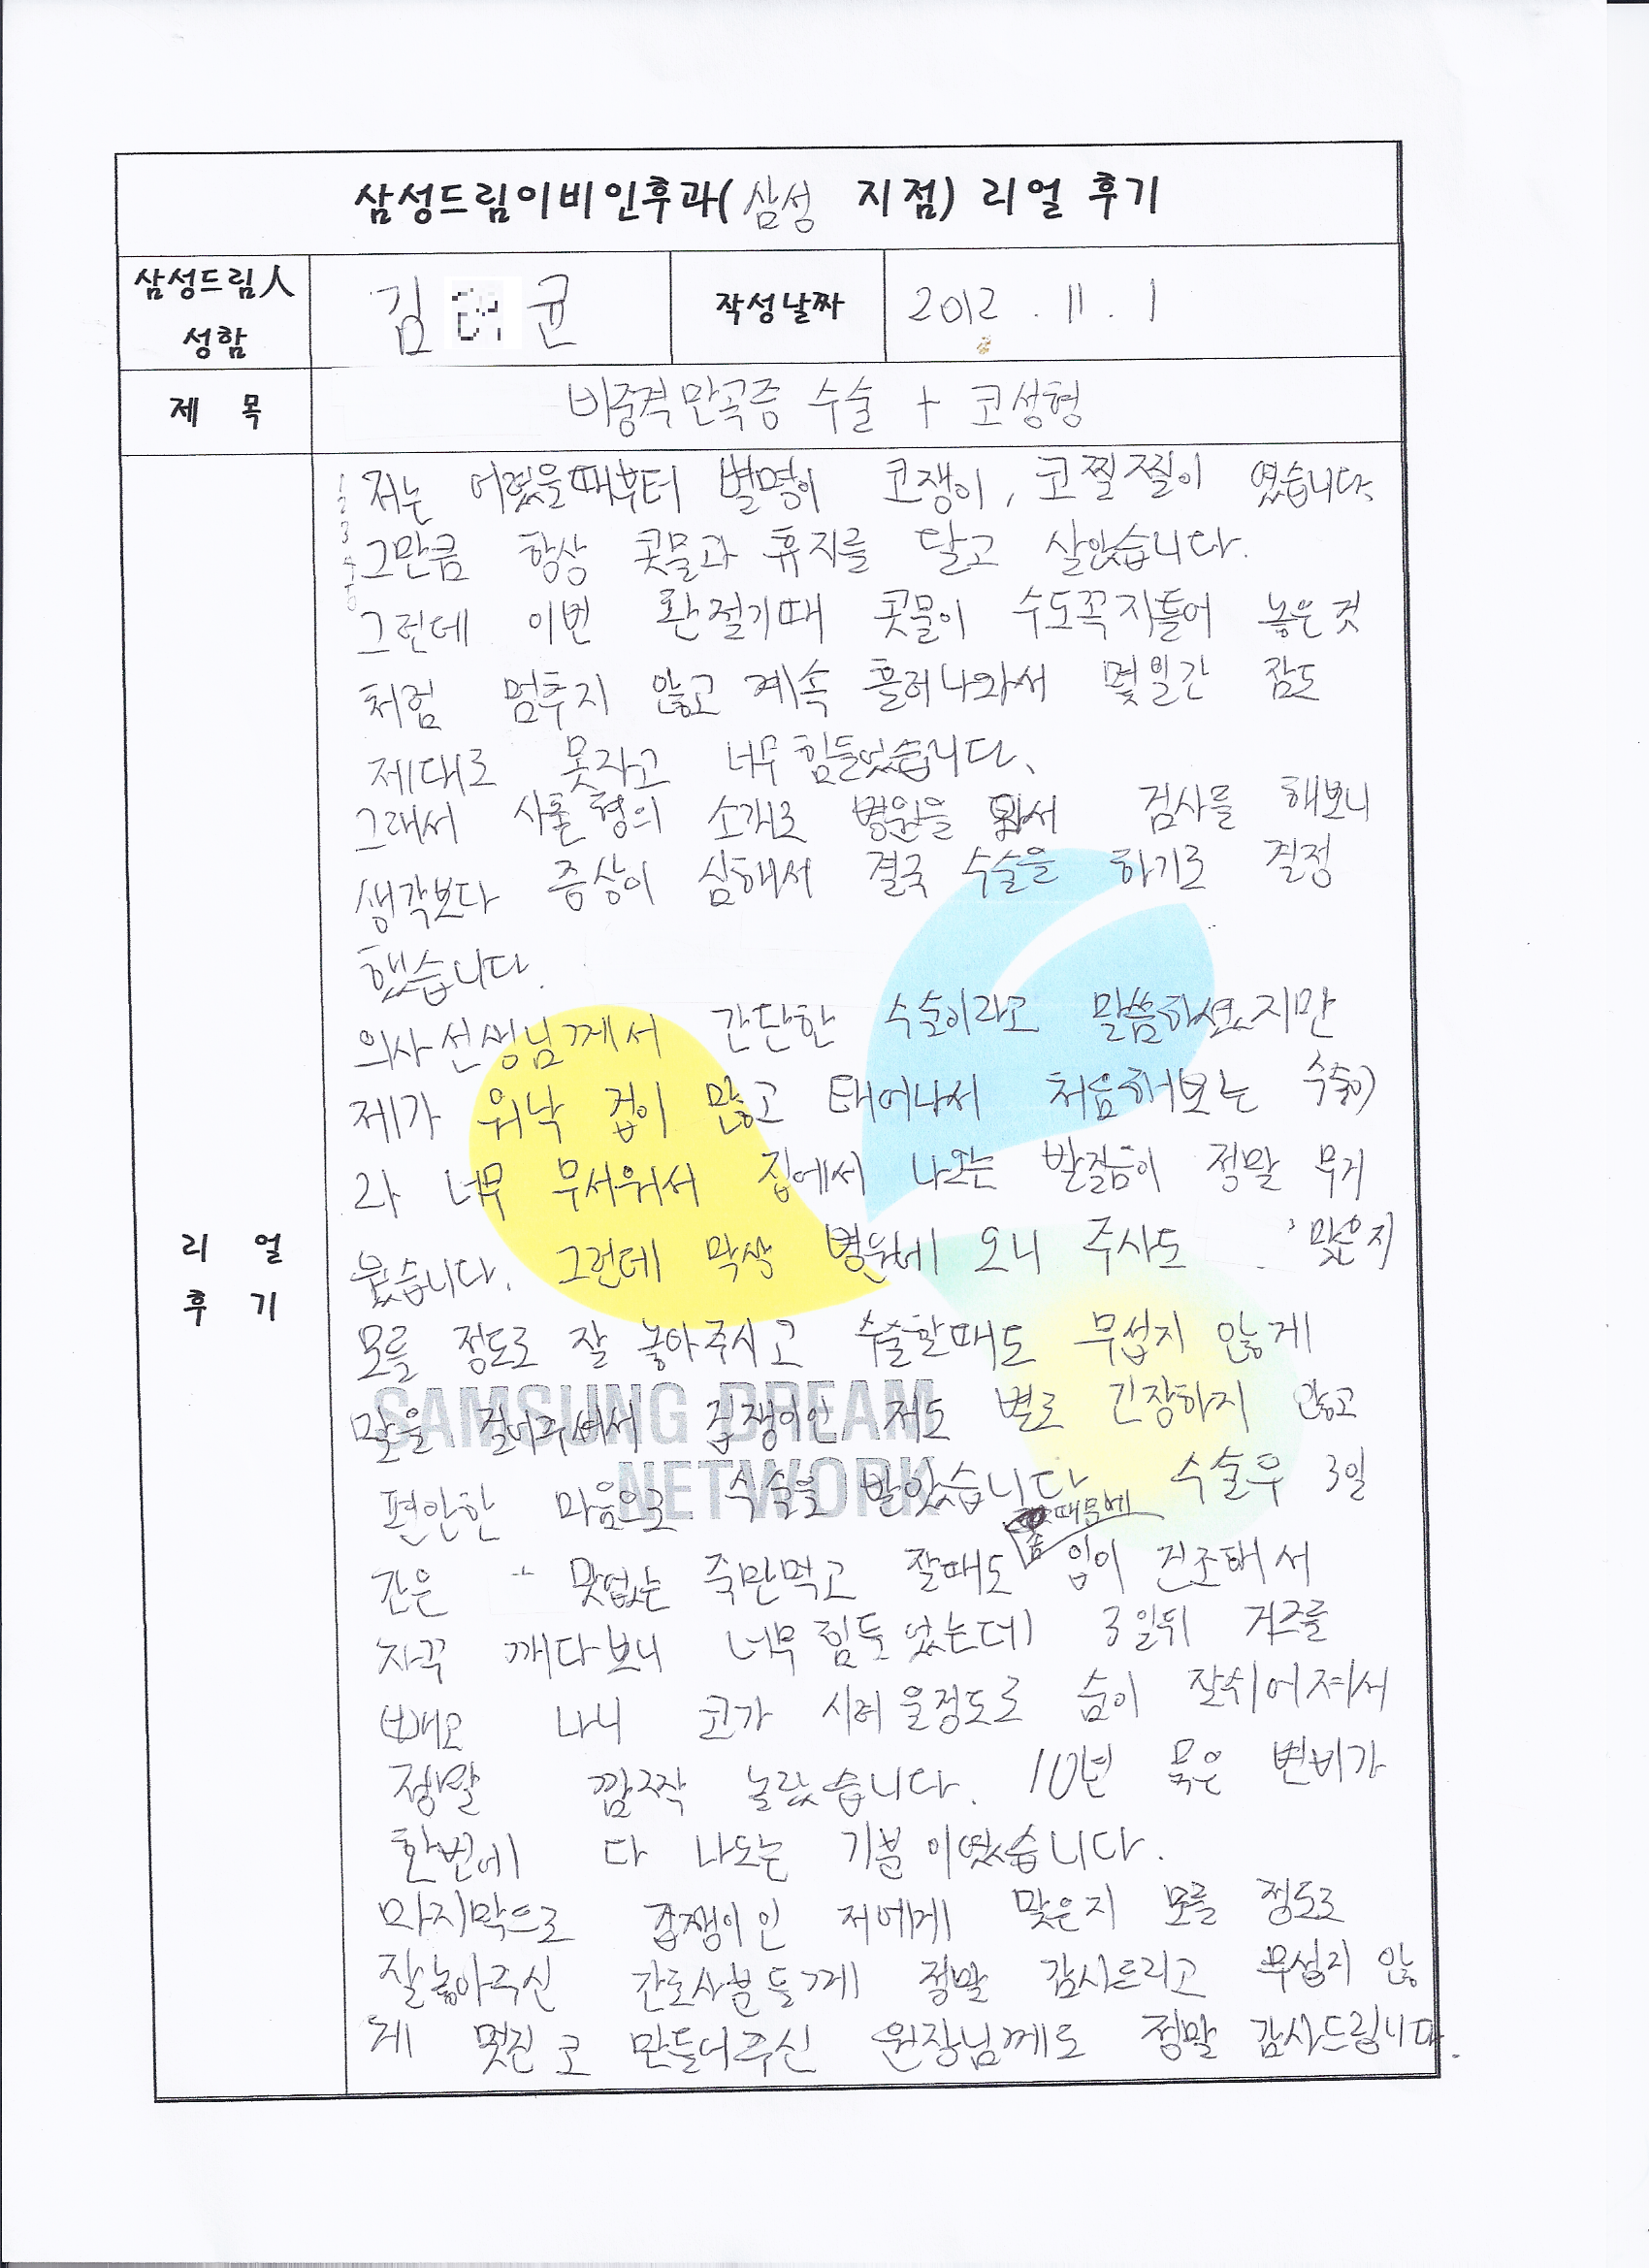 삼성드림이비인후과(삼성 지점) 리얼 후기
삼성드림人
성함
김 균
작성날짜
2012 . 11 . 1
제 목
비중격만곡증 수술 + 코성형
리 얼
후 기
저는 어렸을때부터 별명이 코쟁이, 코찔찔이 였습니다.
그만큼 항상 콧물과 휴지를 달고 살았습니다.
그런데 이번 환절기때 콧물이 수도꼭지틀어 놓은것
처럼 멈추지 않고 계속 흘러나와서 몇일간 잠도
제대로 못자고 너무 힘들었습니다.
그래서 사촌형의 소개로 병원을 와서 검사를 해보니
생각보다 증상이 심해서 결국 수술을 하기로 결정
했습니다.
의사선생님께서 간단한 수술이라고 말씀하셨지만
제가 워낙 겁이 많고 태어나서 처음해보는 수술이
라 너무 무서워서 집에서 나오는 발걸음이 정말 무거
웠습니다. 그런데 막상 병원에 오니 주사도 맞은지
모를 정도로 잘 놓아주시고 수술할때도 무섭지 않게
말을 걸어주셔서 겁쟁이인 저도 별로 긴장하지 않고
편안한 마음으로 수술을 받았습니다 수술후 3일
간은 맛없는 죽만먹고 잘때도 솜때문에 입이 건조해서
자꾸 깨다보니 너무 힘들었는데 3일뒤 거즈를
빼고 나니 코가 시려울정도로 숨이 잘쉬어져서
정말 깜짝 놀랐습니다. 10년 묵은 변비가
한번에 다 나오는 기분이였습니다.
마지막으로 겁쟁이인 저에게 맞은지 모를 정도로
잘놓아주신 간호사분들께 정말 감사드리고 무섭지 않
게 멋진 코 만들어주신 원장님께도 정말 감사드립니다.
SAMSUNG DREAM
NETWORK